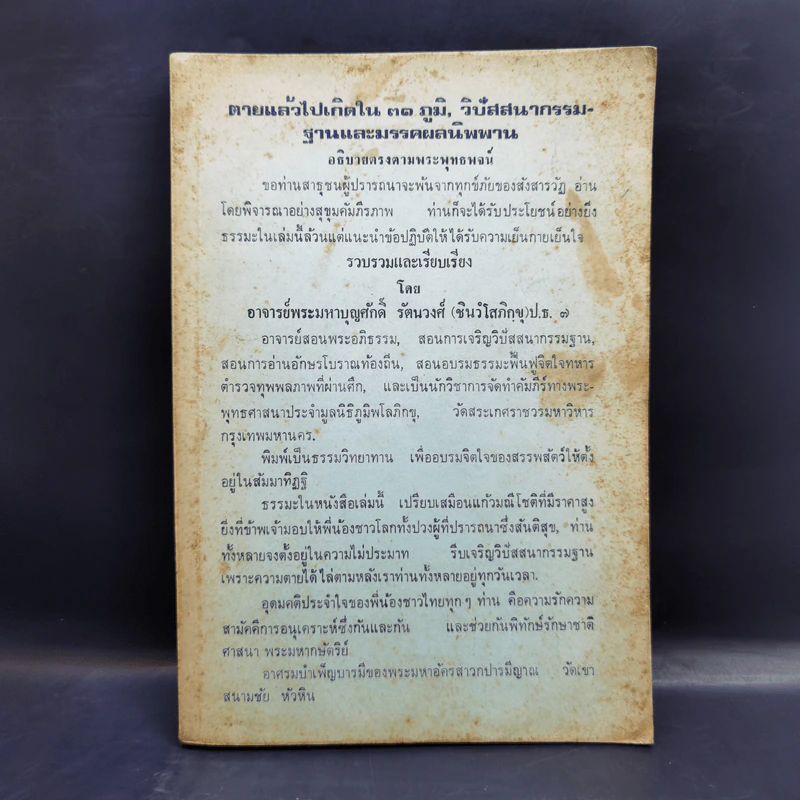 ตายแล้วไปเกิดใน ๓๑ ภูมิ, วิปัสสนากรรม-
ฐานและมรรคผลนิพพาน
อธิบายตรงตามพระพุทธพจน์
ขอท่านสาธุชนผู้ปรารถนาจะพ้นจากทุกข์ภัยของสังสารวัฏ อ่าน
โดยพิจารณาอย่างสุขุมคัมภีรภาพ ท่านก็จะได้รับประโยชน์อย่างยิ่ง
ธรรมะในเล่มนี้ล้วนแต่แนะนำข้อปฏิบัติให้ได้รับความเย็นกายเย็นใจ
รวบรวมและเรียบเรียง
โดย
อาจารย์พระมหาบุญศักดิ์ รัตนวงศ์ (ชินวํโสภิกฺขุ) ป.ธ. ๗
อาจารย์สอนพระอภิธรรม, สอนการเจริญวิปัสสนากรรมฐาน,
สอนการอ่านอักษรโบราณท้องถิ่น, สอนอบรมธรรมะฟื้นฟูจิตใจทหาร
ตำรวจทุพพลภาพที่ผ่านศึก, และเป็นนักวิชาการจัดทำคัมภีร์ทางพระ-
พุทธศาสนาประจำมูลนิธิภูมิพโลภิกขุ, วัดสระเกศราชวรมหาวิหาร
กรุงเทพมหานคร.
พิมพ์เป็นธรรมวิทยาทาน เพื่ออบรมจิตใจของสรรพสัตว์ให้ตั้ง
อยู่ในสัมมาทิฏฐิ
ธรรมะในหนังสือเล่มนี้ เปรียบเสมือนแก้วมณีโชติที่มีราคาสูง
ยิ่งที่ข้าพเจ้ามอบให้พี่น้องชาวโลกทั้งปวงผู้ที่ปรารถนาซึ่งสันติสุข, ท่าน
ทั้งหลายจงตั้งอยู่ในความไม่ประมาท รีบเจริญวิปัสสนากรรมฐาน
เพราะความตายได้ไล่ตามหลังเราท่านทั้งหลายอยู่ทุกวันเวลา.
อุดมคติประจำใจของพี่น้องชาวไทยทุก ๆ ท่าน คือความรักความ
สามัคคีการอนุเคราะห์ซึ่งกันและกัน และช่วยกันพิทักษ์รักษาชาติ
ศาสนา พระมหากษัตริย์
อาศรมบำเพ็ญบารมีของพระมหาอัครสาวกปารมีญาณ วัดเขา
สนามชัย หัวหิน